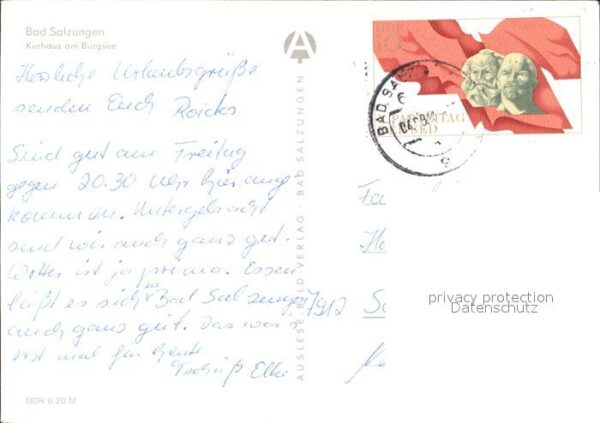 Bad Salzungen
Kurhaus am Burgsee
Herzliche Urlaubsgrüße
senden Euch
Sind gut am Freitag
gegen 20.30 Uhr hier ange
kommen. Untergebracht
sind wir auch ganz gut.
Wetter ist ja prima. Essen
läßt es sich in Bad Salzungen
auch ganz gut. Das war's
erst mal für heute.
Tschüß Elke
DDR 0.20 M
AUSLESE-BILD-VERLAG · BAD SALZUNGEN
A
DDR
10
PARTEITAG
SED
BAD SAL
Fa
7912
privacy protection
Datenschutz